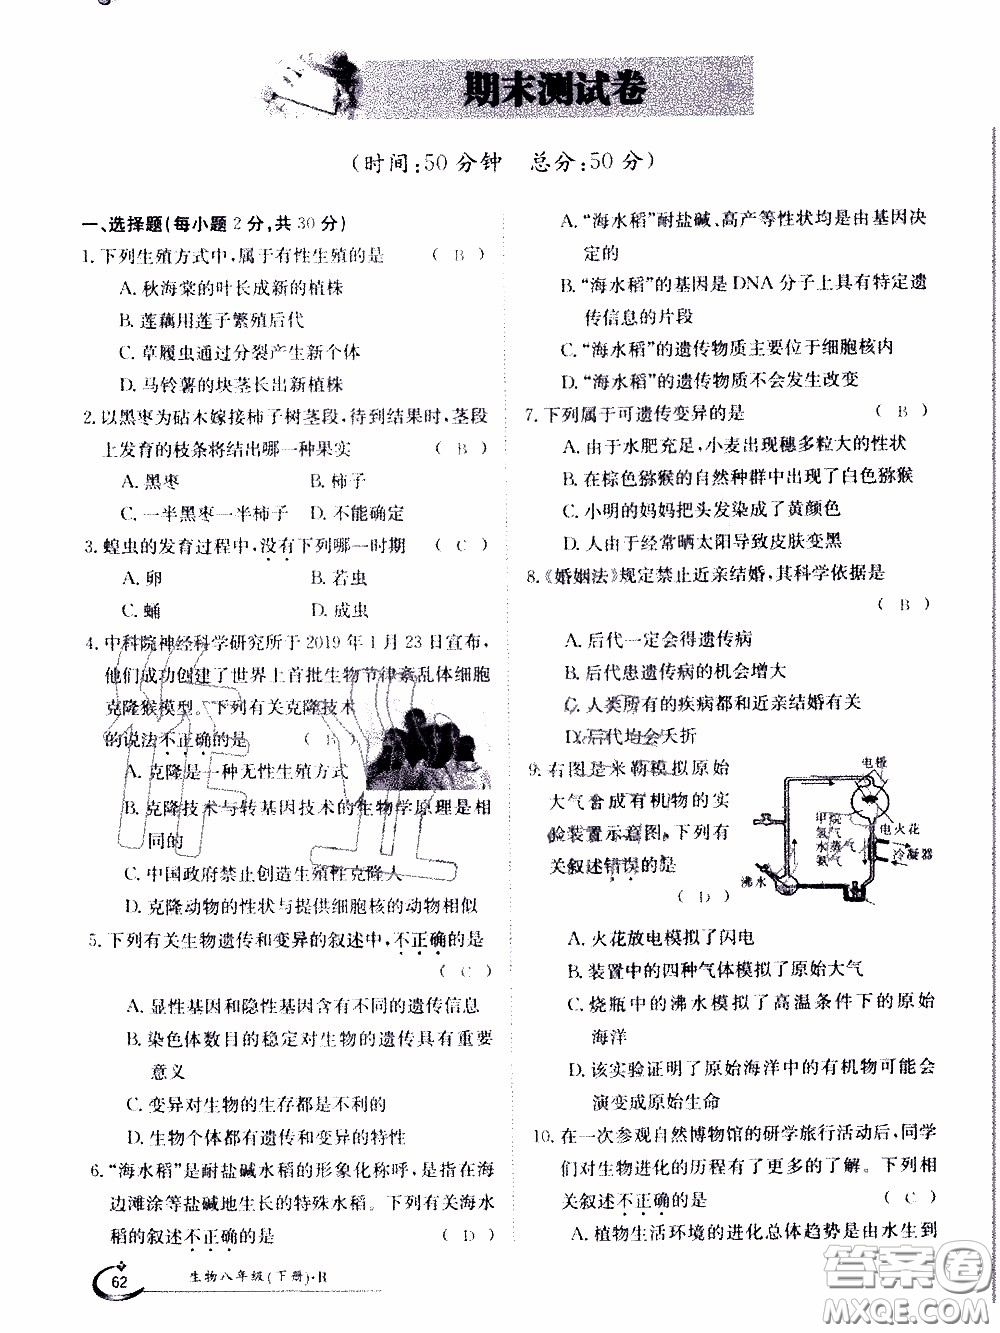 期末测试卷
(时间:50分钟 总分:50分)
一、选择题(每小题2分,共30分)
1.下列生殖方式中,属于有性生殖的是 ( B )
A.秋海棠的叶长成新的植株
B.莲藕用莲子繁殖后代
C.草履虫通过分裂产生新个体
D.马铃薯的块茎长出新植株
2.以黑枣为砧木嫁接柿子树茎段,待到结果时,茎段
上发育的枝条将结出哪一种果实 ( B )
A.黑枣 B.柿子
C.一半黑枣一半柿子 D.不能确定
3.蝗虫的发育过程中,没有下列哪一时期 ( C )
A.卵 B.若虫
C.蛹 D.成虫
4.中科院神经科学研究所于2019年1月23日宣布,
他们成功创建了世界上首批生物节律紊乱体细胞
克隆猴模型。下列有关克隆技术
的说法不正确的是 ( B )
A.克隆是一种无性生殖方式
B.克隆技术与转基因技术的生物学原理是相
同的
C.中国政府禁止创造生殖性克隆人
D.克隆动物的性状与提供细胞核的动物相似
5.下列有关生物遗传和变异的叙述中,不正确的是
( C )
A.显性基因和隐性基因含有不同的遗传信息
B.染色体数目的稳定对生物的遗传具有重要
意义
C.变异对生物的生存都是不利的
D.生物个体都有遗传和变异的特性
6.“海水稻”是耐盐碱水稻的形象化称呼,是指在海
边滩涂等盐碱地生长的特殊水稻。下列有关海水
稻的叙述不正确的是 ( D )
A.“海水稻”耐盐碱、高产等性状均是由基因决
定的
B.“海水稻”的基因是DNA分子上具有特定遗
传信息的片段
C.“海水稻”的遗传物质主要位于细胞核内
D.“海水稻”的遗传物质不会发生改变
7.下列属于可遗传变异的是 ( B )
A.由于水肥充足,小麦出现穗多粒大的性状
B.在棕色猕猴的自然种群中出现了白色猕猴
C.小明的妈妈把头发染成了黄颜色
D.人由于经常晒太阳导致皮肤变黑
8.《婚姻法》规定禁止近亲结婚,其科学依据是
( B )
A.后代一定会得遗传病
B.后代患遗传病的机会增大
C.人类所有的疾病都和近亲结婚有关
D.后代均会夭折
9.右图是米勒模拟原始
大气合成有机物的实
验装置示意图,下列有
关叙述错误的是
( D )
电极
甲烷
氢气
水蒸气
氨气
电火花
冷凝器
沸水
A.火花放电模拟了闪电
B.装置中的四种气体模拟了原始大气
C.烧瓶中的沸水模拟了高温条件下的原始
海洋
D.该实验证明了原始海洋中的有机物可能会
演变成原始生命
10.在一次参观自然博物馆的研学旅行活动后,同学
们对生物进化的历程有了更多的了解。下列相
关叙述不正确的是 ( C )
A.植物生活环境的进化总体趋势是由水生到
62 生物八年级(下册)·R
答案圈
MXQE.COM